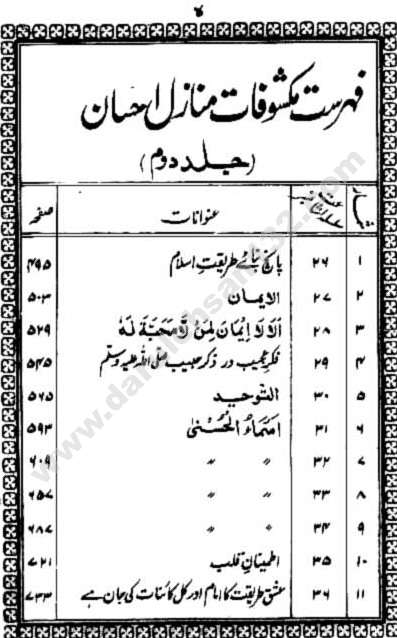 ۷
فہرست مکشوفات منازل احسان
(جلد دوم)
شمار سلسلہ اشاعت نمبر عنوانات صفحہ
۱ ۲۶ پانچ بنائے طریقتِ اسلام ۴۹۵
۲ ۲۷ الایمان ۵۰۳
۳ ۲۸ اَلَا لَا اِیْمَانَ لِمَنْ لَّا مَحَبَّةَ لَهٗ ۵۲۹
۴ ۲۹ فکرِ مجیب در ذکرِ حبیب صلی اللہ علیہ وسلم ۵۴۵
۵ ۳۰ التوحید ۵۶۵
۶ ۳۱ اسماءُ الحُسنیٰ ۵۹۳
۷ ۳۲ " " ۶۰۹
۸ ۳۳ " " ۶۵۷
۹ ۳۴ " " ۶۸۷
۱۰ ۳۵ اطمینانِ قلب ۷۲۱
۱۱ ۳۶ عشق طریقت کا امام اور کل کائنات کی جان ہے ۷۳۳